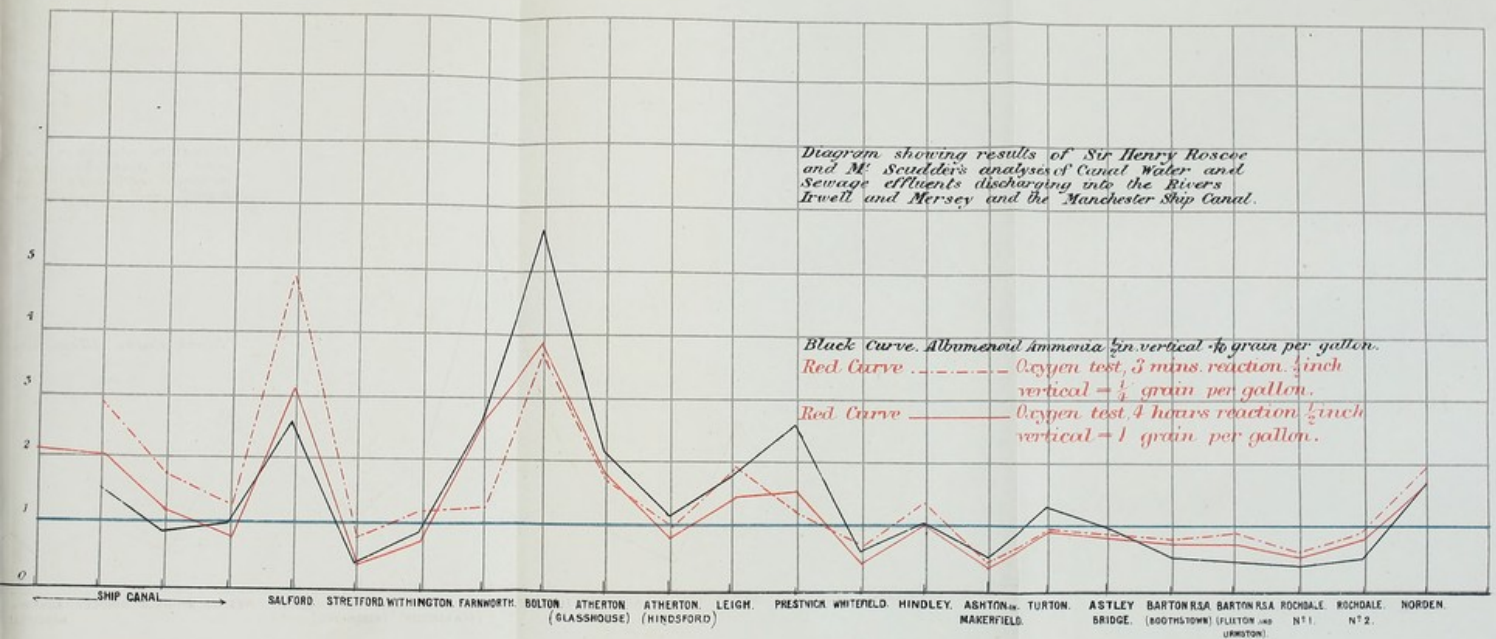 Diagram showing results of Sir Henry Roscoe
and Mr. Scudder's analysis of Canal Water and
Sewage effluents discharging into the Rivers
Irwell and Mersey and the Manchester Ship Canal.
5
4
3
2
1
0
Black Curve. Albumenoid Ammonia ½in. vertical 1/10 grain per gallon.
Red Curve Oxygen test, 3 mins. reaction. ½ inch
vertical = ¼ grain per gallon.
Red Curve Oxygen test, 4 hours reaction ½ inch
vertical = 1 grain per gallon.
SHIP CANAL
SALFORD.
STRETFORD.
WITHINGTON.
FARNWORTH.
BOLTON.
ATHERTON
(GLASSHOUSE)
ATHERTON.
(HINDSFORD)
LEIGH.
PRESTWICH.
WHITEFIELD.
HINDLEY.
ASHTON IN
MAKERFIELD.
TURTON.
ASTLEY
BRIDGE.
BARTON R.S.A.
(BOOTHSTOWN)
BARTON R.S.A.
(FLIXTON AND
URMSTON)
ROCHDALE.
Nº 1.
ROCHDALE.
Nº 2.
NORDEN.